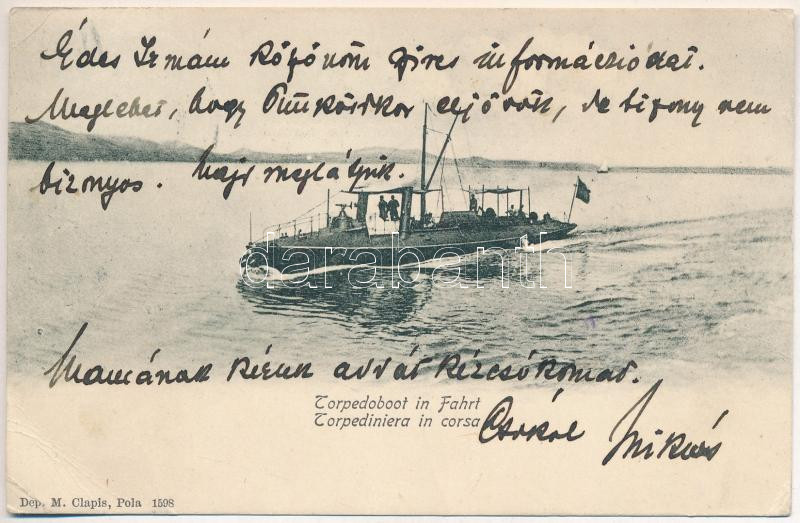 Édes Irmám köszönöm szíves információdat.
Meglehet, hogy Pünköstkor eljövök, de bizony nem
bizonyos. Majd meglátjuk.
darabanth
Mamának kérem add át kézcsókomat.
Torpedoboot in Fahrt
Torpediniera in corsa
Csókol
Miklós
Dep. M. Clapis, Pola 1598